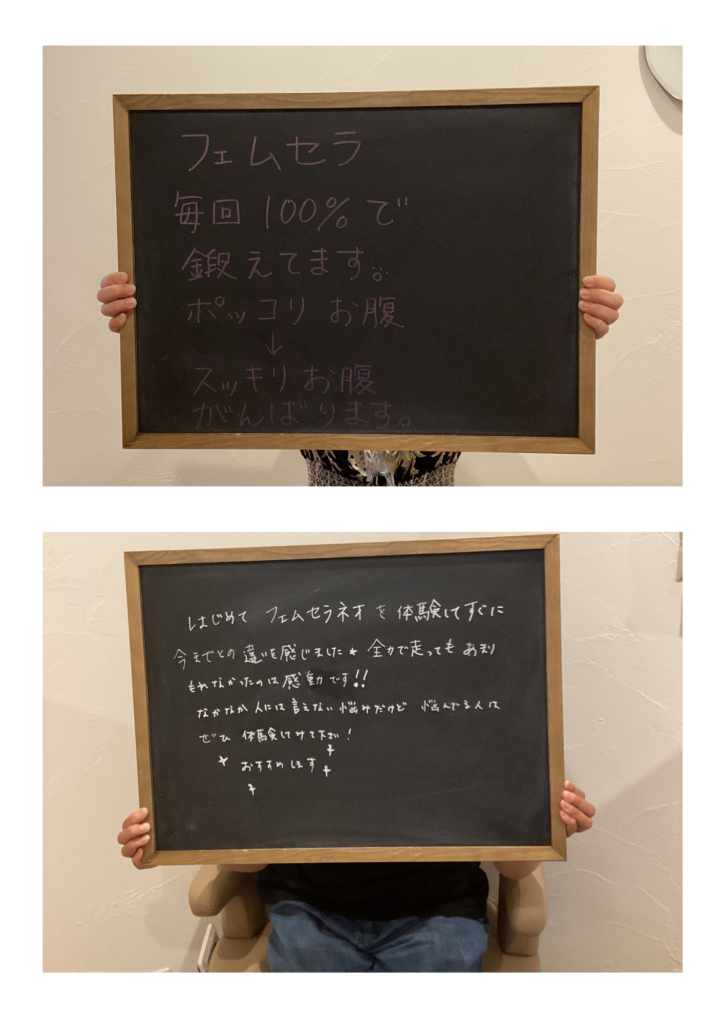 フェムセラ
毎回 100% で
鍛えてます。
ポッコリ お腹
↓
スッキリお腹
がんばります。
はじめて フェムセラネオ を 体験してすぐに
今までとの 違いを感じました★ 全力で走っても あまり
もれなかったのは 感動です!!
なかなか 人には 言えない 悩みだけど 悩んでる人は
ぜひ 体験してみて下さい!
おすすめします